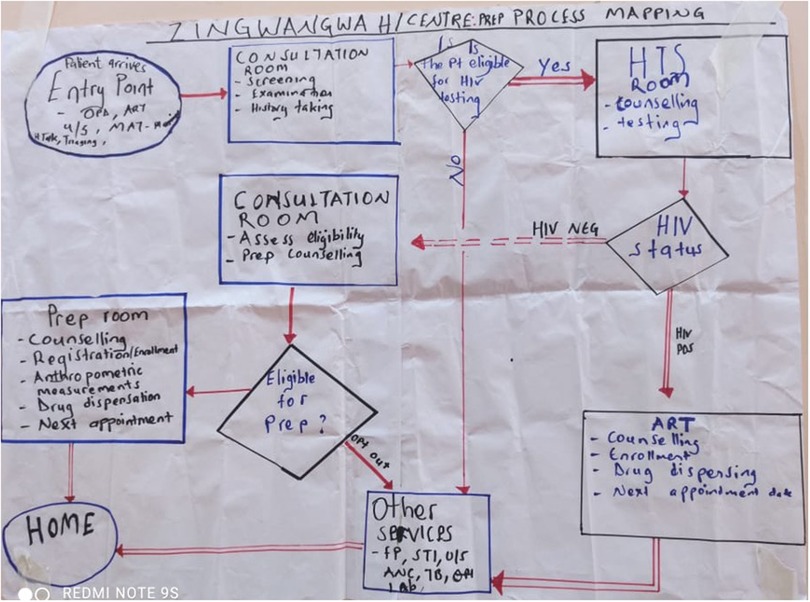 ZINGWANGWA H/CENTRE: PREP PROCESS MAPPING
Patient arrives
Entry Point
- OPD, ART
U/S, MAT-
Triaging,
CONSULTATION
ROOM
- Screening
- Examination
- History taking
Is Is
the Pt eligible
for HIV
testing
Yes
HTS
ROOM
- Counselling
- testing
NO
CONSULTATION
ROOM
- Assess eligibility
- Prep Counselling
HIV NEG
HIV
Status
HIV
POS
Prep room
- Counselling
- Registration/Enrollment
- Anthropometric
measurements
- Drug dispensation
- Next appointment
Eligible
for
Prep?
OPT OUT
ART
- Counselling
- Enrollment
- Drug dispensing
- Next appointment date
HOME
Other
SERVICES
- FP, STI, U/S
ANC, TB, OPD
LAB,
REDMI NOTE 9S